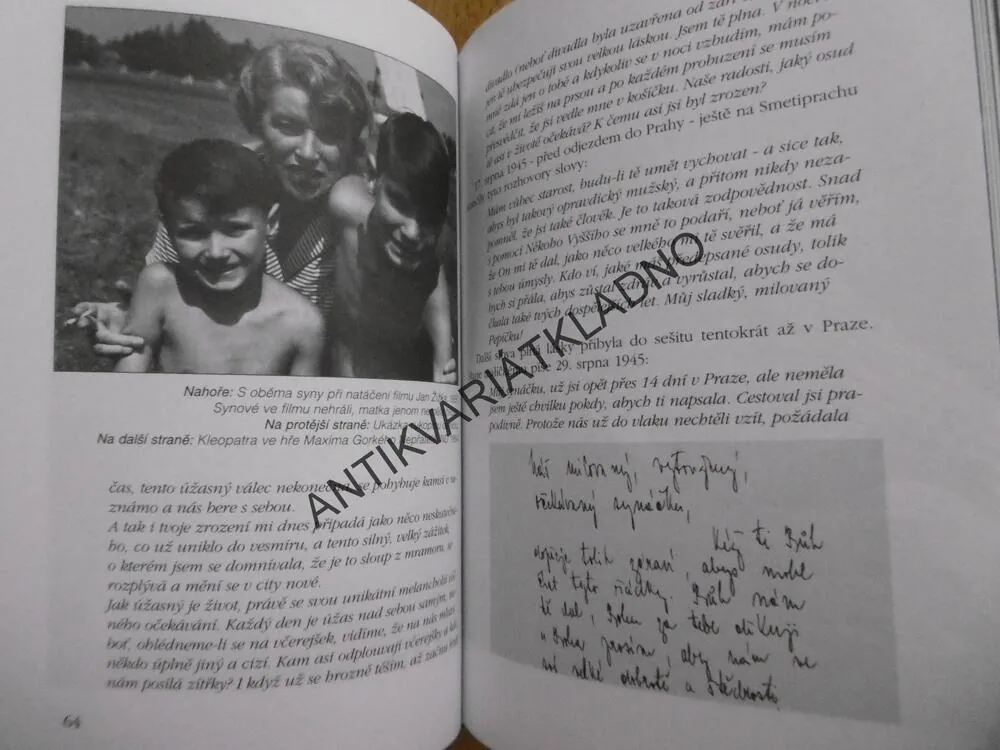 Nahoře: S oběma syny při natáčení filmu Jan Žižka,
Synové ve filmu nehráli, matka jenom
Na protější straně: Ukázka
Na další straně: Kleopatra ve hře Maxima Gorkého
čas, tento úžasný válec nekonečna, se pohybuje kamsi v ne-
známo a nás bere s sebou.
A tak i tvoje zrození mi dnes připadá jako něco neskutečné-
ho, co už uniklo do vesmíru, a tento silný, velký zážitek,
o kterém jsem se domnívala, že je to sloup z mramoru, se
rozplývá a mění se v city nové.
Jak úžasný je život, právě se svou unikátní melancholií
ného očekávání. Každý den je úžas nad sebou samým, ne-
boť, ohlédneme-li se na včerejšek, vidíme, že na nás mluví
někdo úplně jiný a cizí. Kam asi odplouvají včerejšky a kdo
nám posílá zítřky? I když už se hrozně těším, až začni
64
divadlo (neboť divadla byla uzavřena od září
jen tě ubezpečuji svou velkou láskou. Jsem tě plna. V noci
mně zdá jen o tobě a kdykoliv se v noci vzbudím, mám po-
cit, že mi ležíš na prsou a po každém probuzení se musím
přesvědčit, že jsi vedle mne v košíčku. Naše radosti, jaký osud
tě asi v životě očekává? K čemu asi jsi byl zrozen?
17. srpna 1945 - před odjezdem do Prahy - ještě na Smetiprachu
tyto rozhovory slovy:
Mám vůbec starost, budu-li tě umět vychovat - a sice tak,
abys byl takový opravdický mužský, a přitom nikdy neza-
pomněl, že jsi také člověk. Je to taková zodpovědnost. Snad
s pomocí Někoho Vyššího se mně to podaří, neboť já věřím,
že On mi tě dal, jako něco velkého mi tě svěřil, a že má
s tebou úmysly. Kdo ví, jaké máš předepsané osudy, tolik
bych si přála, abys zůstal zdráv a vyrůstal, abych se do-
čkala také tvých dospělejších let. Můj sladký, milovaný
Pepíčku!
Další slova plná lásky přibyla do sešitu tentokrát až v Praze.
píše 29. srpna 1945:
už jsi opět přes 14 dní v Praze, ale neměla
jsem ještě chvilku pokdy, abych ti napsala. Cestoval jsi pra-
podivně. Protože nás už do vlaku nechtěli vzít, požádala
Náš milovaný, vytoužený,
očekávaný synáčku,
Když ti Bůh
dopřeje tolik zdraví, abys mohl
číst tyto řádky. Bůh nám
tě dal, Bohu za tebe děkuji
a Boha prosím, aby nám se
své velké dobroty a štědrosti
ANTIKVARIÁTKLADNO